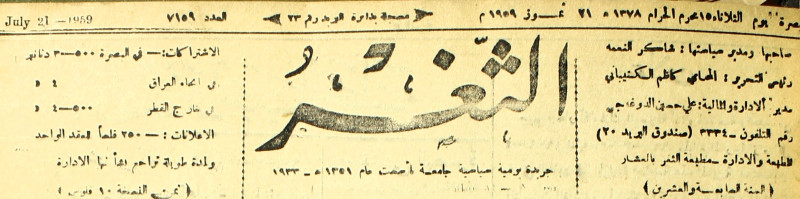 البصرة يوم الثلاثاء ١٥ محرم الحرام ١٣٧٨ ه ٢١ تموز ١٩٥٩ م مسجلة بدائرة البريد رقم ٢٣ العدد ٧١٥٩ July 21 - 1959
صاحبها ومدير سياستها : شاكر النعمه
رئيس التحرير : المحامي كاظم الكشيباني
مدير الادارة والمالية : علي حسين الدوغه جي
رقم التلفون ـ ٣٣٣٤ (صندوق البريد ٢٠)
المطبعة والادارة ـ مطبعة الثغر بالعشار
( السنة السابعة والعشرين )
الثغر
جريدة يومية سياسية جامعة تأسست عام ١٣٥١ ه ـ ١٩٣٣
الاشتراكات :ـ في البصرة ٥٠٠ـ٣ دنانير
في انحاء العراق ٤ »
في خارج القطر ٥٠٠ـ٤ »
الاعلانات :ـ ٢٥٠ فلساً للعقد الواحد
ولمدة طويلة تراجع بشأنها الادارة
( ثمن النسخة ١٠ فلوس )